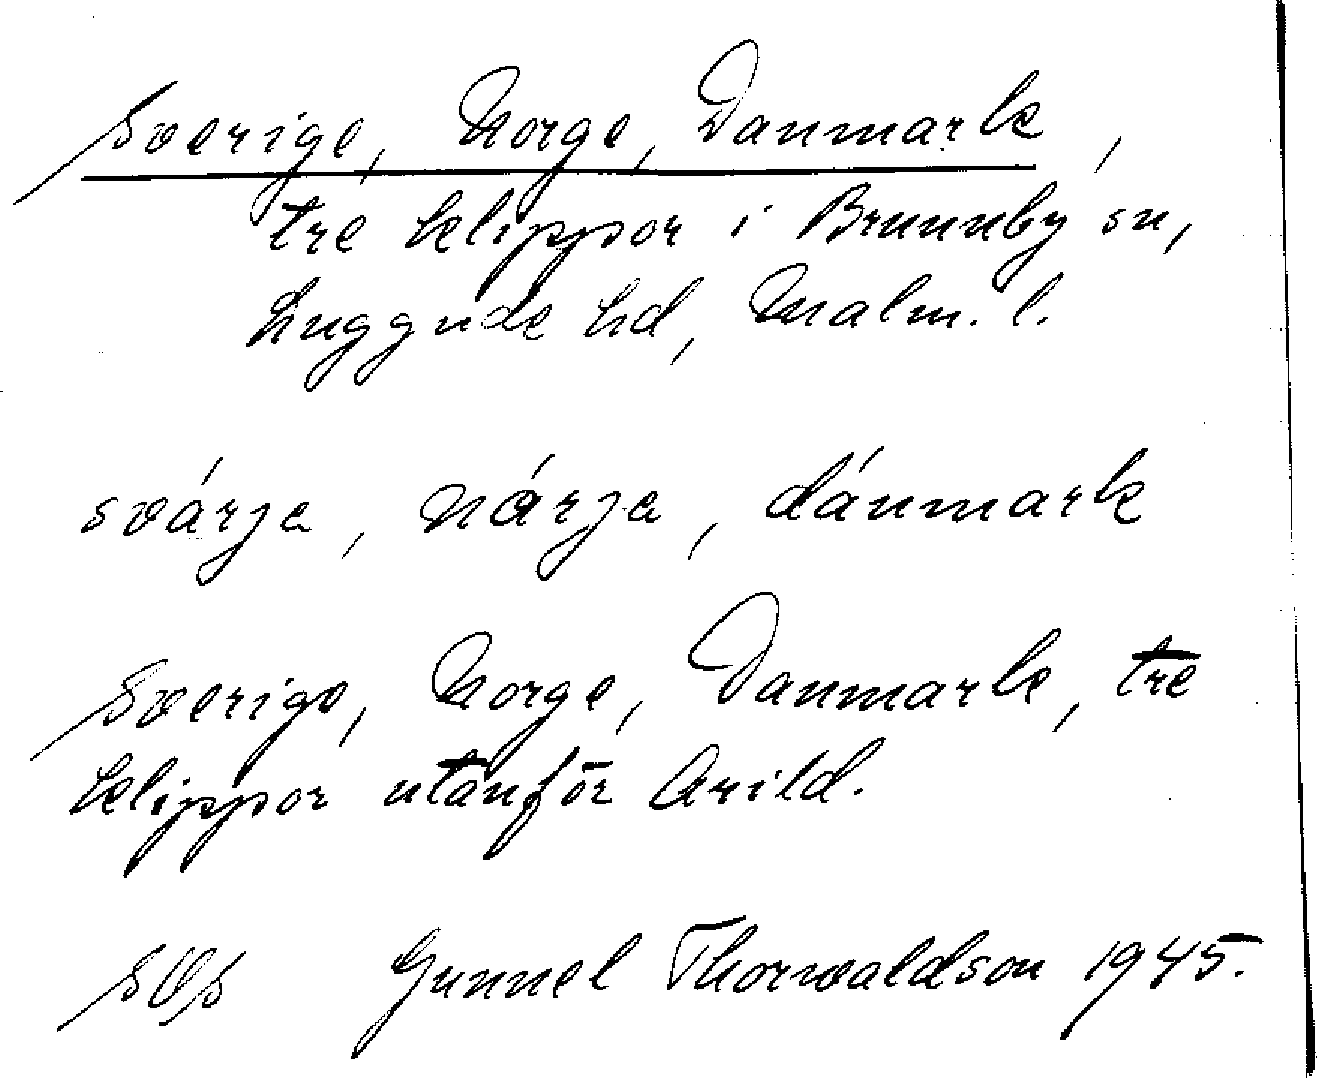 Sverige, Norge, Danmark,
tre klippor i Brunnby sn,
Luggude hd, Malm. l.
svárja, nárja, dánmark
Sverige, Norge, Danmark, tre
klippor utanför Arild.
SOS Gunnel Thorwaldson 1945.